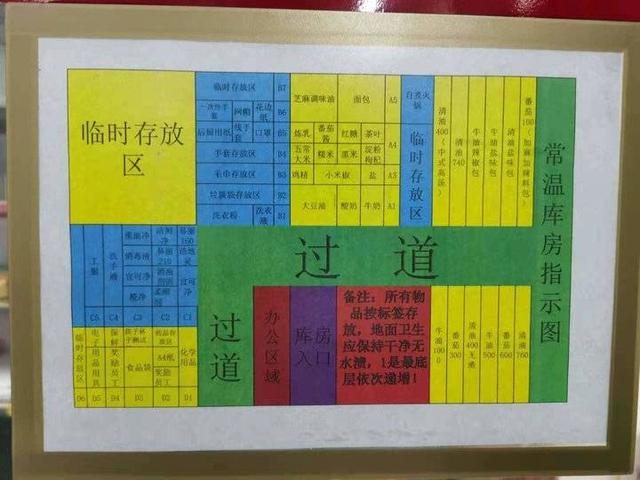 临时存放
区
临时存放区 B7
一次性手套 网帽 花边纸 B6
后厨用纸 线手套 口罩 B5
手套存放区 B4
毛巾存放区 B3
垃圾袋存放区 B2
洗衣粉 洗衣液 B1
芝麻调味油 面包 A5
炼乳 番茄酱 红糖 茶叶 A4
五常大米 糯米 黑米 淀粉 枸杞
鸡精 小米椒 盐 A3
大豆油 酸奶 牛奶 A1
自煮火锅
临时存放区
清油400(中式高汤)
清油740
牛油辣椒包
牛油盐味包
清油盐味包
番茄100(加麻加辣料包)
常温库房指示图
过道
工服 C5
洗手液 C4
重油净
消毒液
宜可净
橙净
C3
易涤210
C2
易涤160
洁地灵
宜可净
C1
临时存放区 D6
电子用品用具 D5
保鲜奖励员工 D4
筷子杯子测试
食品袋
D3
药品存放区
A4纸
奖励员工
D2
化学用品
D1
过道
办公区域
库房入口
备注:所有物
品按标签存
放,地面卫生
应保持干净无
水渍,1是最底
层依次递增!
牛油1000
番茄300
清油400无渣
牛油500
番茄600
清油760